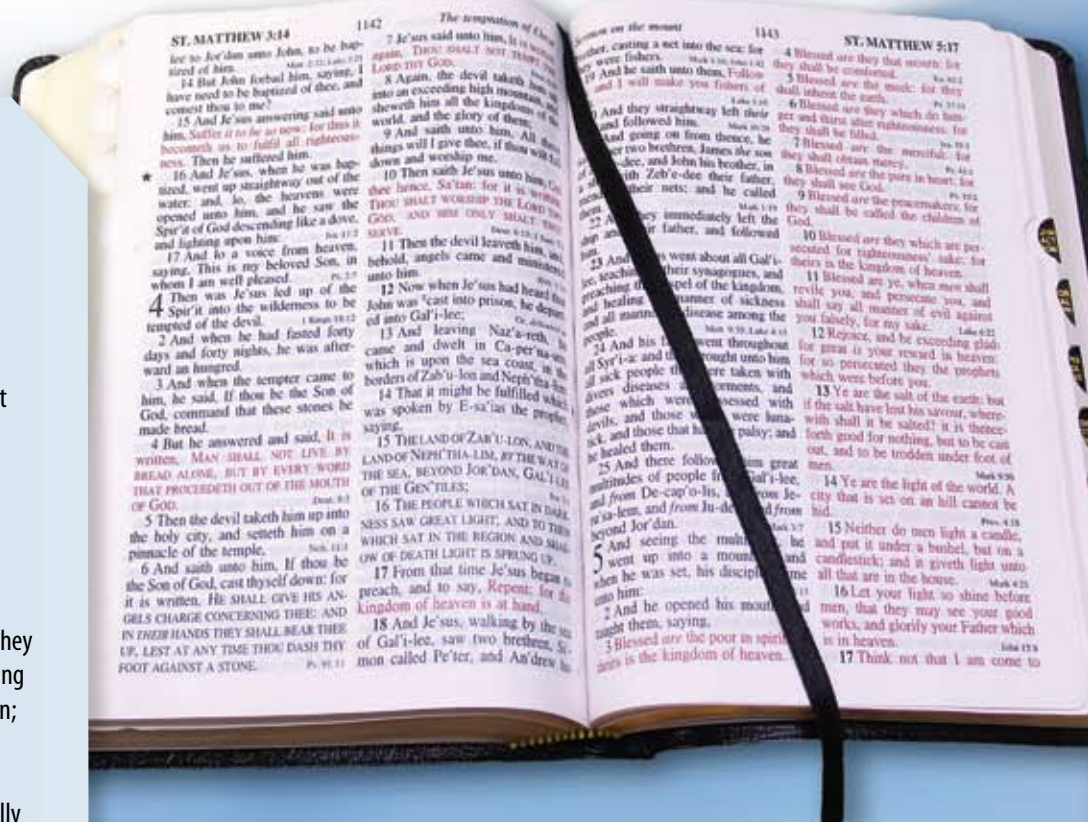 ST. MATTHEW 3:14
lee to Jor'dan unto John, to be bap-
tized of him.
14 But John forbad him, saying, I
have need to be baptized of thee, and
comest thou to me?
15 And Je'sus answering said unto
him, Suffer it to be so now: for thus it
becometh us to fulfil all righteous-
ness. Then he suffered him.
★ 16 And Je'sus, when he was bap-
tized, went up straightway out of the
water: and, lo, the heavens were
opened unto him, and he saw the
Spir'it of God descending like a dove,
and lighting upon him:
17 And lo a voice from heaven,
saying, This is my beloved Son, in
whom I am well pleased. Ps. 2:7
4 Then was Je'sus led up of the
Spir'it into the wilderness to be
tempted of the devil. 1 Kings 18:12
2 And when he had fasted forty
days and forty nights, he was after-
ward an hungred.
3 And when the tempter came to
him, he said, If thou be the Son of
God, command that these stones be
made bread.
4 But he answered and said, It is
written, MAN SHALL NOT LIVE BY
BREAD ALONE, BUT BY EVERY WORD
THAT PROCEEDETH OUT OF THE MOUTH
OF GOD. Deut. 8:3
5 Then the devil taketh him up into
the holy city, and setteth him on a
pinnacle of the temple, Neh. 11:1
6 And saith unto him, If thou be
the Son of God, cast thyself down: for
it is written, HE SHALL GIVE HIS AN-
GELS CHARGE CONCERNING THEE: AND
IN THEIR HANDS THEY SHALL BEAR THEE
UP, LEST AT ANY TIME THOU DASH THY
FOOT AGAINST A STONE. Ps. 91:11
1142 The temptation of
7 Je'sus said unto him, It is
again, THOU SHALT NOT TEMPT THE
LORD THY GOD.
8 Again, the devil taketh him
into an exceeding high mountain, and
sheweth him all the kingdoms of the
world, and the glory of them;
9 And saith unto him, All these
things will I give thee, if thou wilt fall
down and worship me.
10 Then saith Je'sus unto him, Get
thee hence, Sa'tan: for it is written,
THOU SHALT WORSHIP THE LORD THY
GOD, AND HIM ONLY SHALT THOU
SERVE.
11 Then the devil leaveth him, and,
behold, angels came and ministered
unto him.
12 Now when Je'sus had heard that
John was cast into prison, he depart-
ed into Gal'i-lee;
13 And leaving Naz'a-reth, he
came and dwelt in Ca-per'na-um,
which is upon the sea coast, in the
borders of Zab'u-lon and Neph'tha-lim:
14 That it might be fulfilled which
was spoken by E-sa'ias the prophet,
saying,
15 THE LAND OF ZAB'U-LON, AND THE
LAND OF NEPH'THA-LIM, BY THE WAY OF
THE SEA, BEYOND JOR'DAN, GAL'I-LEE
OF THE GEN'TILES;
16 THE PEOPLE WHICH SAT IN DARK-
NESS SAW GREAT LIGHT; AND TO THEM
WHICH SAT IN THE REGION AND SHAD-
OW OF DEATH LIGHT IS SPRUNG UP.
17 From that time Je'sus began to
preach, and to say, Repent: for the
kingdom of heaven is at hand.
18 And Je'sus, walking by the sea
of Gal'i-lee, saw two brethren, Si-
mon called Pe'ter, and An'drew his
on the mount 1143
casting a net into the sea: for
were fishers.
And he saith unto them, Follow
and I will make you fishers of
And they straightway left their
and followed him.
And going on from thence, he
two brethren, James the son
and John his brother, in
with Zeb'e-dee their father,
their nets; and he called
22 immediately left the
father, and followed
23 went about all Gal'i-
lee, teaching their synagogues, and
preaching the of the kingdom,
and healing manner of sickness
and all disease among the
people.
24 And his went throughout
all Syr'i-a: and brought unto him
all sick people taken with
divers diseases and
those which were with
devils, and those were luna-
tick, and those that palsy; and
he healed them.
25 And there great
multitudes of people Gal'i-lee,
and from De-cap'o-lis, Je-
ru'sa-lem, and from and from
beyond Jor'dan.
5 And seeing the he
went up into a and
when he was set, his
unto him:
2 And he opened his
taught them, saying,
3 Blessed are the poor in
theirs is the kingdom of heaven.
ST. MATTHEW 5:17
4 Blessed are they that mourn: for
they shall be comforted.
5 Blessed are the meek: for they
shall inherit the earth.
6 Blessed are they which do hun-
ger and thirst after righteousness: for
they shall be filled.
7 Blessed are the merciful: for
they shall obtain mercy.
8 Blessed are the pure in heart: for
they shall see God.
9 Blessed are the peacemakers: for
they shall be called the children of
God.
10 Blessed are they which are per-
secuted for righteousness' sake: for
theirs is the kingdom of heaven.
11 Blessed are ye, when men shall
revile you, and persecute you, and
shall say all manner of evil against
you falsely, for my sake. Luke 6:22
12 Rejoice, and be exceeding glad:
for great is your reward in heaven:
for so persecuted they the prophets
which were before you.
13 Ye are the salt of the earth: but
if the salt have lost his savour, where-
with shall it be salted? it is thence-
forth good for nothing, but to be cast
out, and to be trodden under foot of
men.
14 Ye are the light of the world. A
city that is set on an hill cannot be
hid. Prov. 4:18
15 Neither do men light a candle,
and put it under a bushel, but on a
candlestick; and it giveth light unto
all that are in the house. Mark 4:21
16 Let your light so shine before
men, that they may see your good
works, and glorify your Father which
is in heaven. John 15:8
17 Think not that I am come to